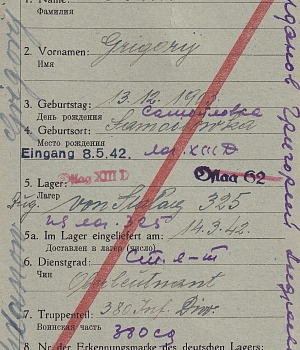 1. Name:
Фамилия
2. Vornamen: Grigory
Имя
3. Geburtstag: 13.12.
День рождения Самойловка
4. Geburtsort: Samoilowka
Место рождения
Eingang 8.5.42. лаг. XIII D
Oflag XIII D Oflag 62
5. Lager: von Stalag 325
Лагерь
из лаг. 325
5a. Im Lager eingeliefert am: 14.3.42.
Доставлен в лагерь (число)
6. Dienstgrad: Ст. л-т
Чин
Oberleutnant
7. Truppenteil: 380 Inf. Div.
Воинская часть 380 сд
8. Nr. der Erkennungsmarke des deutschen Lagers:
Григорий
Grigory